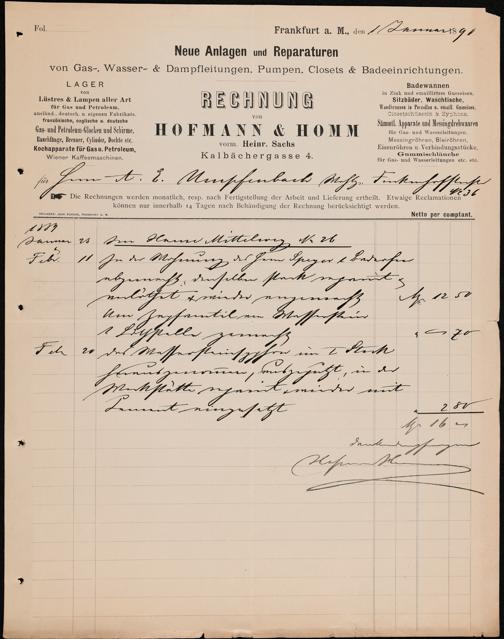 Fol.
Frankfurt a. M., den 1 Januar 1890
Neue Anlagen und Reparaturen
von Gas-, Wasser- & Dampfleitungen, Pumpen, Closets & Badeeinrichtungen.
LAGER
von
Lüstres & Lampen aller Art
für Gas und Petroleum,
ausländ., deutsch. u. eigenen Fabrikats.
französische, englische u. deutsche
Gas- und Petroleum-Glocken und Schirme,
Rauchfänge, Brenner, Cylinder, Dochte etc.
Kochapparate für Gas u. Petroleum,
Wiener Kaffeemaschinen.
RECHNUNG
von
HOFMANN & HOMM
vorm. Heinr. Sachs
Kalbächergasse 4.
Badewannen
in Zink und emaillirtem Gusseisen.
Sitzbäder, Waschtische,
Wandbrunnen in Porzellan u. emaill. Gusseisen.
Closetschüsseln & Syphons,
Sämmtl. Apparate und Messinghahnwaaren
für Gas- und Wasserleitungen.
Messingröhren, Bleiröhren,
Eisenröhren u. Verbindungsstücke,
Gummischläuche
für Gas- und Wasserleitungen etc. etc.
für Herrn A. E. Umpfenbach
No. 36
Die Rechnungen werden monatlich, resp. nach Fertigstellung der Arbeit und Lieferung ertheilt. Etwaige Reclamationen
können nur innerhalb 14 Tagen nach Behändigung der Rechnung berücksichtigt werden.
Netto per comptant.
1889
Januar 23 Im Hause Mittelweg No. 26
Febr. 11 In der Wohnung des Herrn Speyer 1 Badeofen
abgemacht, denselben stark reparirt &
verlöthet & wieder angemacht M 12 50
gemacht " - 70
Febr. 20 im I. Stock
herausgenommen, ausgeputzt, in der
Werkstätte reparirt, wieder mit
Cement eingesetzt " 2 80
M 16 -